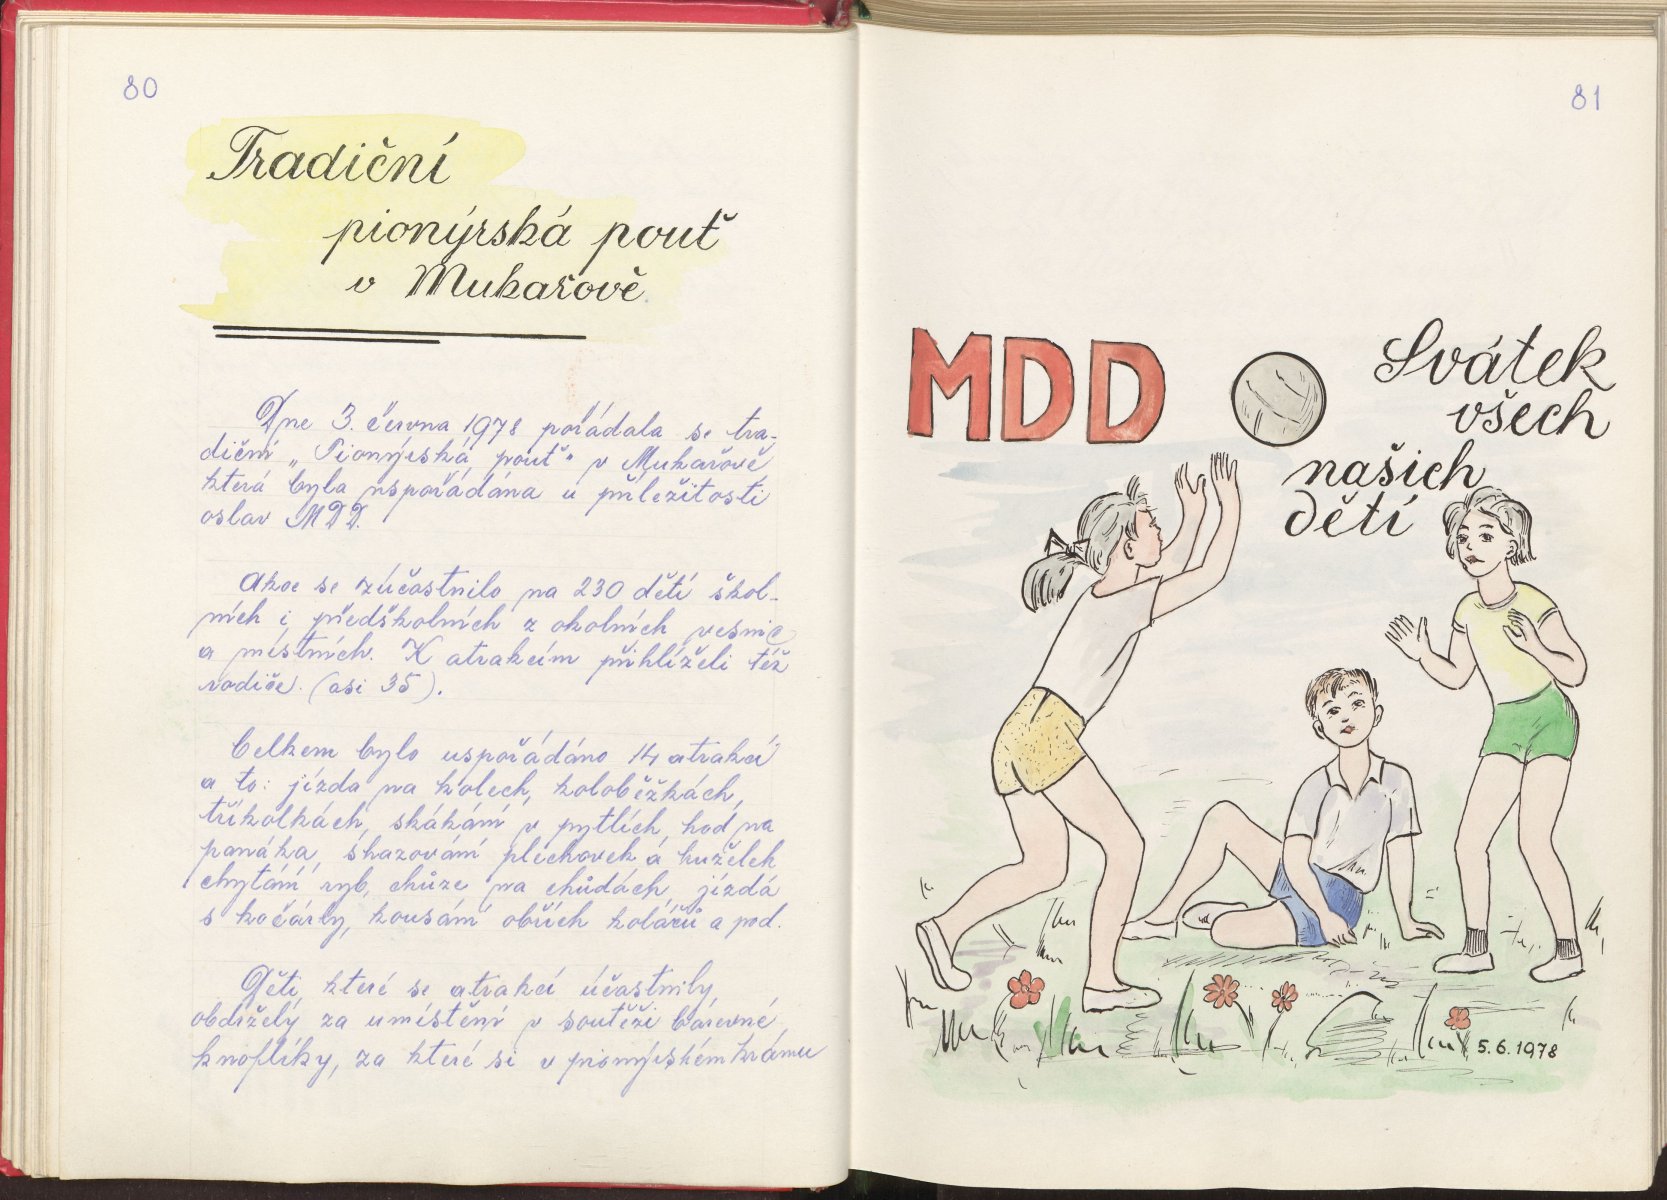 80
Tradiční
pionýrská pouť
v Mukařově
Dne 3. června 1978 pořádala se tra-
diční „Pionýrská pouť" v Mukařově
která byla uspořádána u příležitosti
oslav MDD.
Akce se zúčastnilo na 230 dětí škol-
ních i předškolních z okolních vesnic
a místních. K atrakcím přihlíželi též
rodiče. (asi 35).
Celkem bylo uspořádáno 14 atrakcí
a to: jízda na kolech, koloběžkách,
tříkolkách, skákání v pytlích, hod na
panáka, shazování plechovek a kuželek
chytání ryb, chůze na chůdách, jízda
s kočárky, kousání obřích koláčů a pod.
Děti které se atrakcí účastnily,
obdržely za umístění v soutěži barevné
knoflíky, za které si v pionýrském krámu
81
MDD
Svátek
všech
našich
dětí
5.6.1978